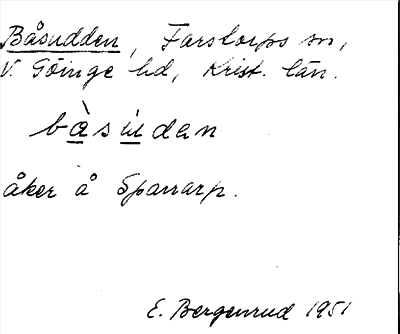 Båsudden, Farstorps sn,
V. Göinge hd, Krist. län.
bàsúdan
åker å Sparrarp.
E. Bergenrud 1951